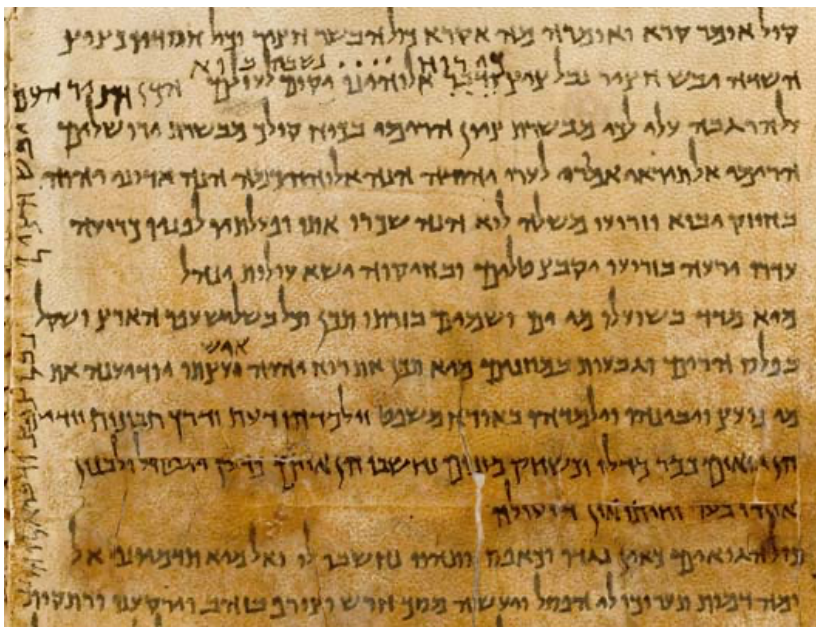 קול אומר קרא ואומרה מה אקרא כול הבשר חציר וכול חסדיו כציץ
כי רוח .... נשבה בוא
השדה יבש חציר נבל ציץ ודבר אלוהינו יקום לעולם הכן חציר העם
על הר גבה עלי לכי מבשרת ציון הרימי בכוח קולך מבשרת ירושלים
הרימי אל תיראי אמרי לערי יהודה הנה אלוהיכמה הנה אדוני יהוה
בחוזק יבוא וזרועו משלה לוא הנה שכרו אתו ופעלתיו לפניו כרועה
עדרו ירעה בזרועו יקבץ טלים ובחיקוה ישא עולות ינהל
מיא מדד בשועלו מי ים ושמים בזרתו תכן וכל בשליש עפר הארץ ושקל
איש
בפלס הרים וגבעות במוזנים מיא תכן את רוח יהוה ועצתו יודיענה את
מי נועץ ויבינהו וילמדהו באורח משפט וילמדהו דעת ודרך תבונות
הן גואים כמר מדלי וכשחק מזנים נחשבו הן איים כדק יטול ולבנון
אין די בער וחיתו אין די עולה
כול הגואים כאין נגדו וכאפס ותהוו נחשבו לו ואל מיא תדמיוני אל
ומה דמות תערוכו לי הפסל ויעשה מסך חרש וצורף בזהב וירקענו ורתקות
יבש חציר נבל ציץ ודבר אלוהינו